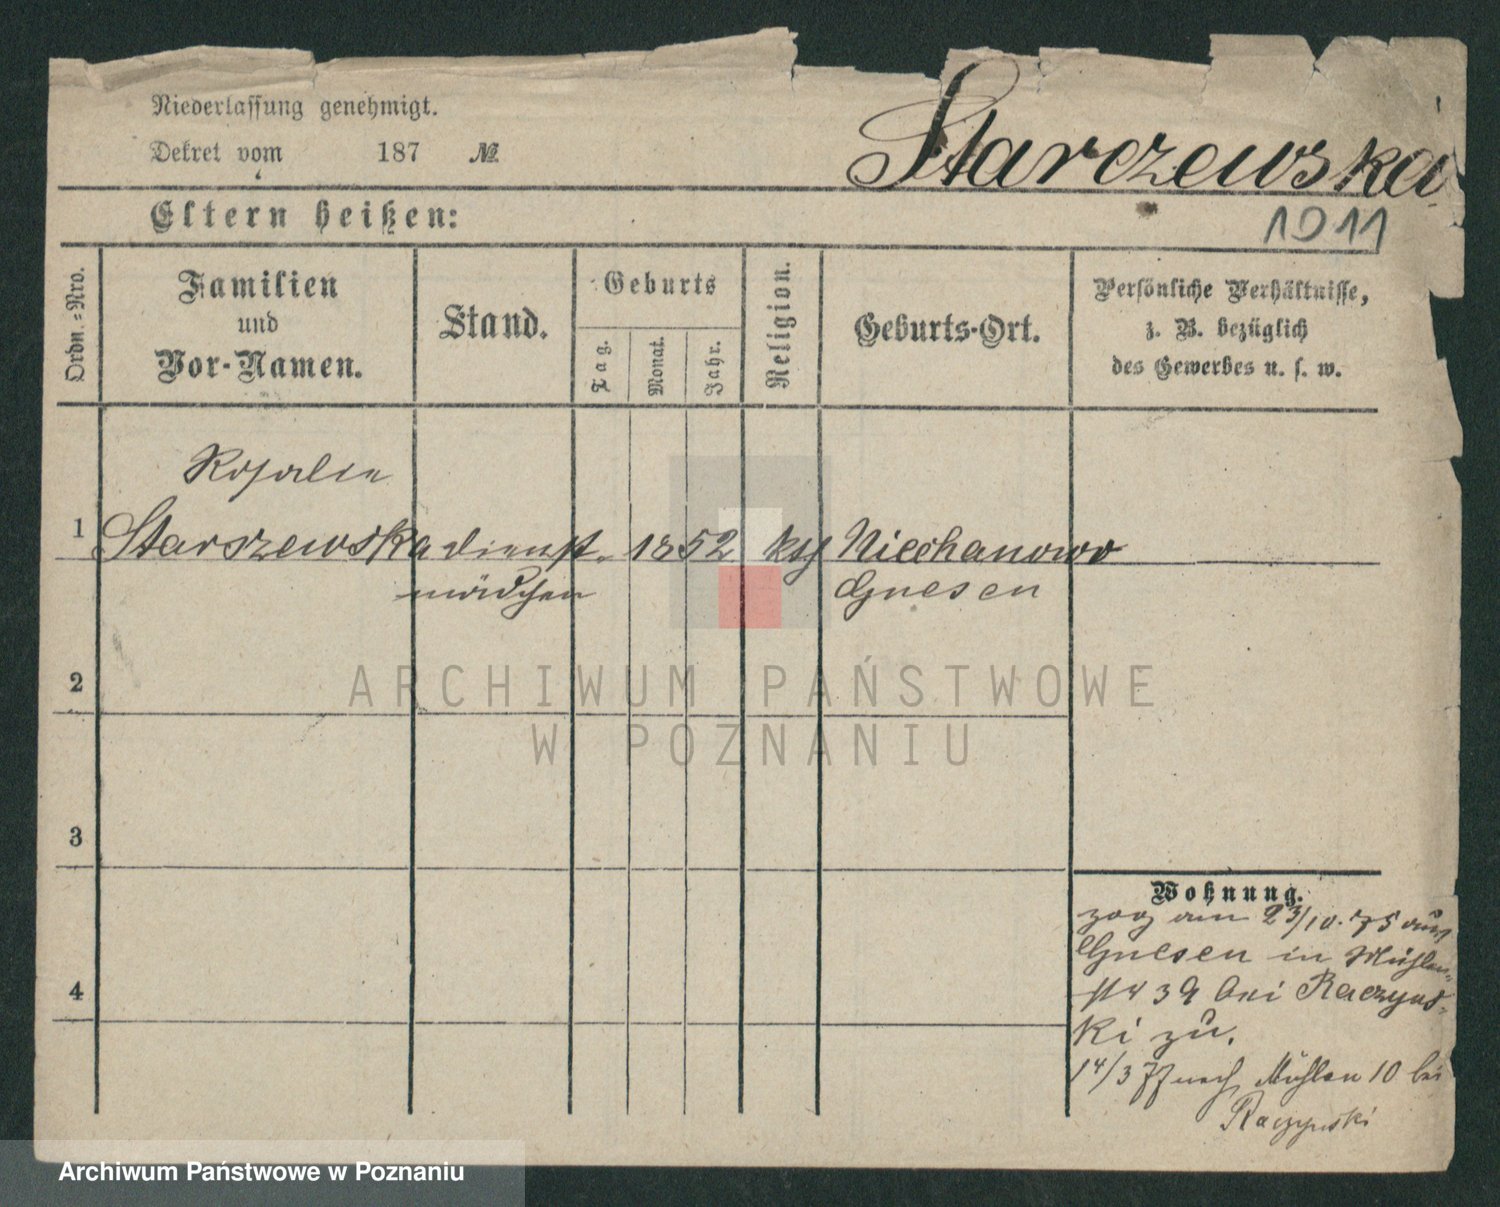 Niederlassung genehmigt.
Dekret vom 187 №
Starczewska
Eltern heißen:
1911
Ordn.=Nro.
Familien
und
Vor-Namen.
Stand.
Geburts
Tag.
Monat.
Jahr.
Religion.
Geburts-Ort.
Persönliche Verhältnisse,
z. B. bezüglich
des Gewerbes u. s. w.
Rosalie
1 Starszewska dienst- 1852 kth Niechanowo
mädchen Gnesen
2
3
4
Wohnung.
zog am 23/10. 75 aus
Gnesen in Mühlen-
str 39 bei Raczyns-
ki zu.
14/3 77 nach Mühlen 10 bei
Raczynski
ARCHIWUM PAŃSTWOWE
W POZNANIU
Archiwum Państwowe w Poznaniu